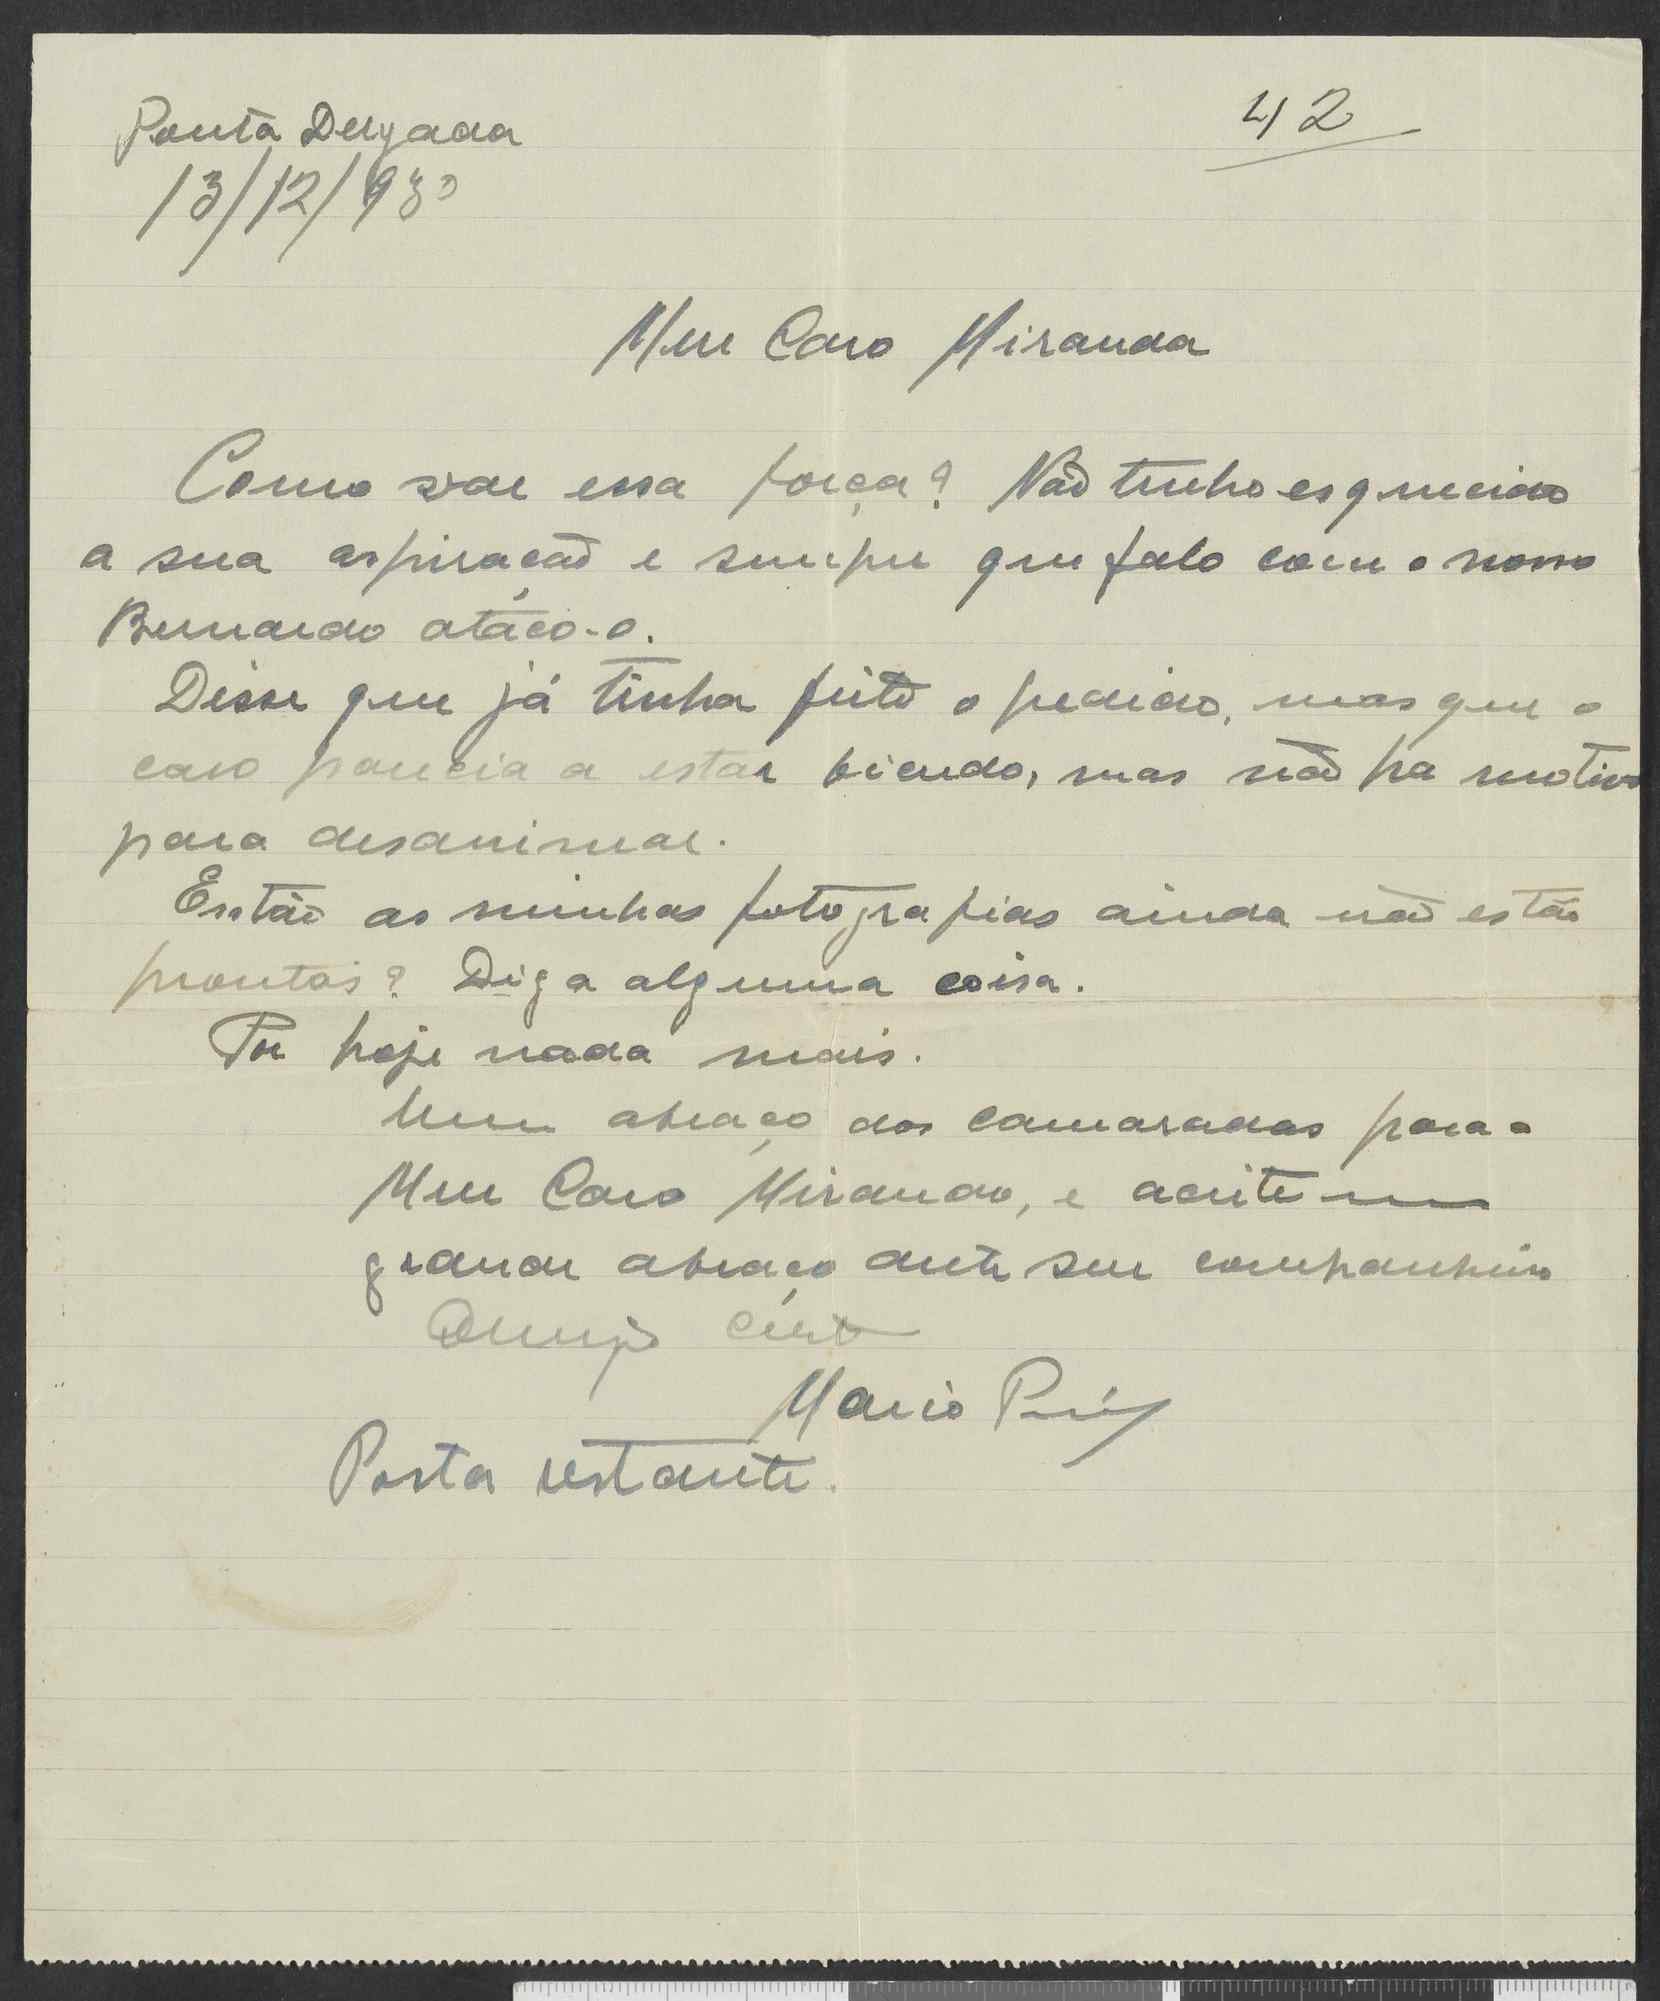 Ponta Delgada
42
13/12/930
Meu Caro Miranda
Como vae essa força? Não tenho esquecido
a sua aspiração e sempre que falo com o nosso
Bernardo atáco-o.
Disse que já tinha feito o pedido, mas que o
caso parecia a estar bicudo, mas não ha motivo
para desanimar.
Então as minhas fotografias ainda não estão
prontas? Diga alguma coisa.
Por hoje nada mais.
Um abraço dos camaradas para o
Meu Caro Miranda, e aceite um
grande abraço deste seu companheiro
Amigo certo
Mario
Posta restante.